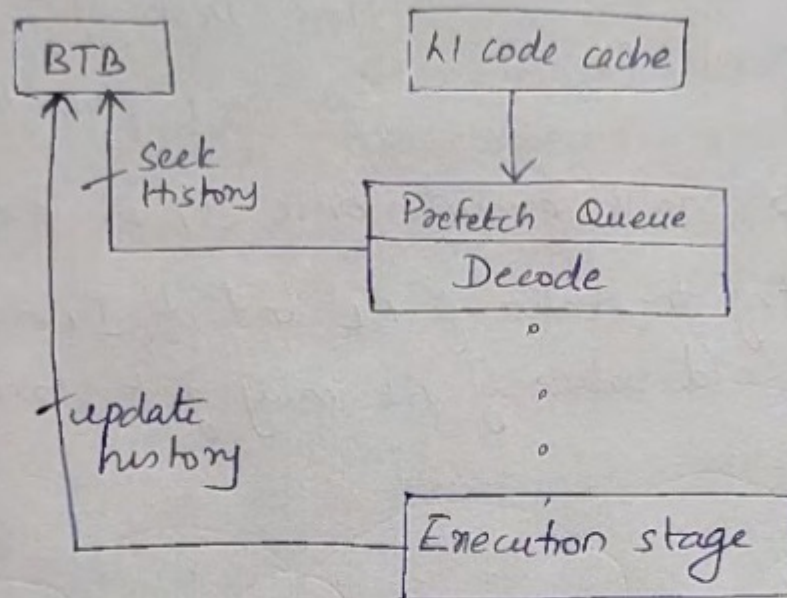 BTB
L1 code cache
Seek
History
Prefetch Queue
Decode
update
history
Execution stage